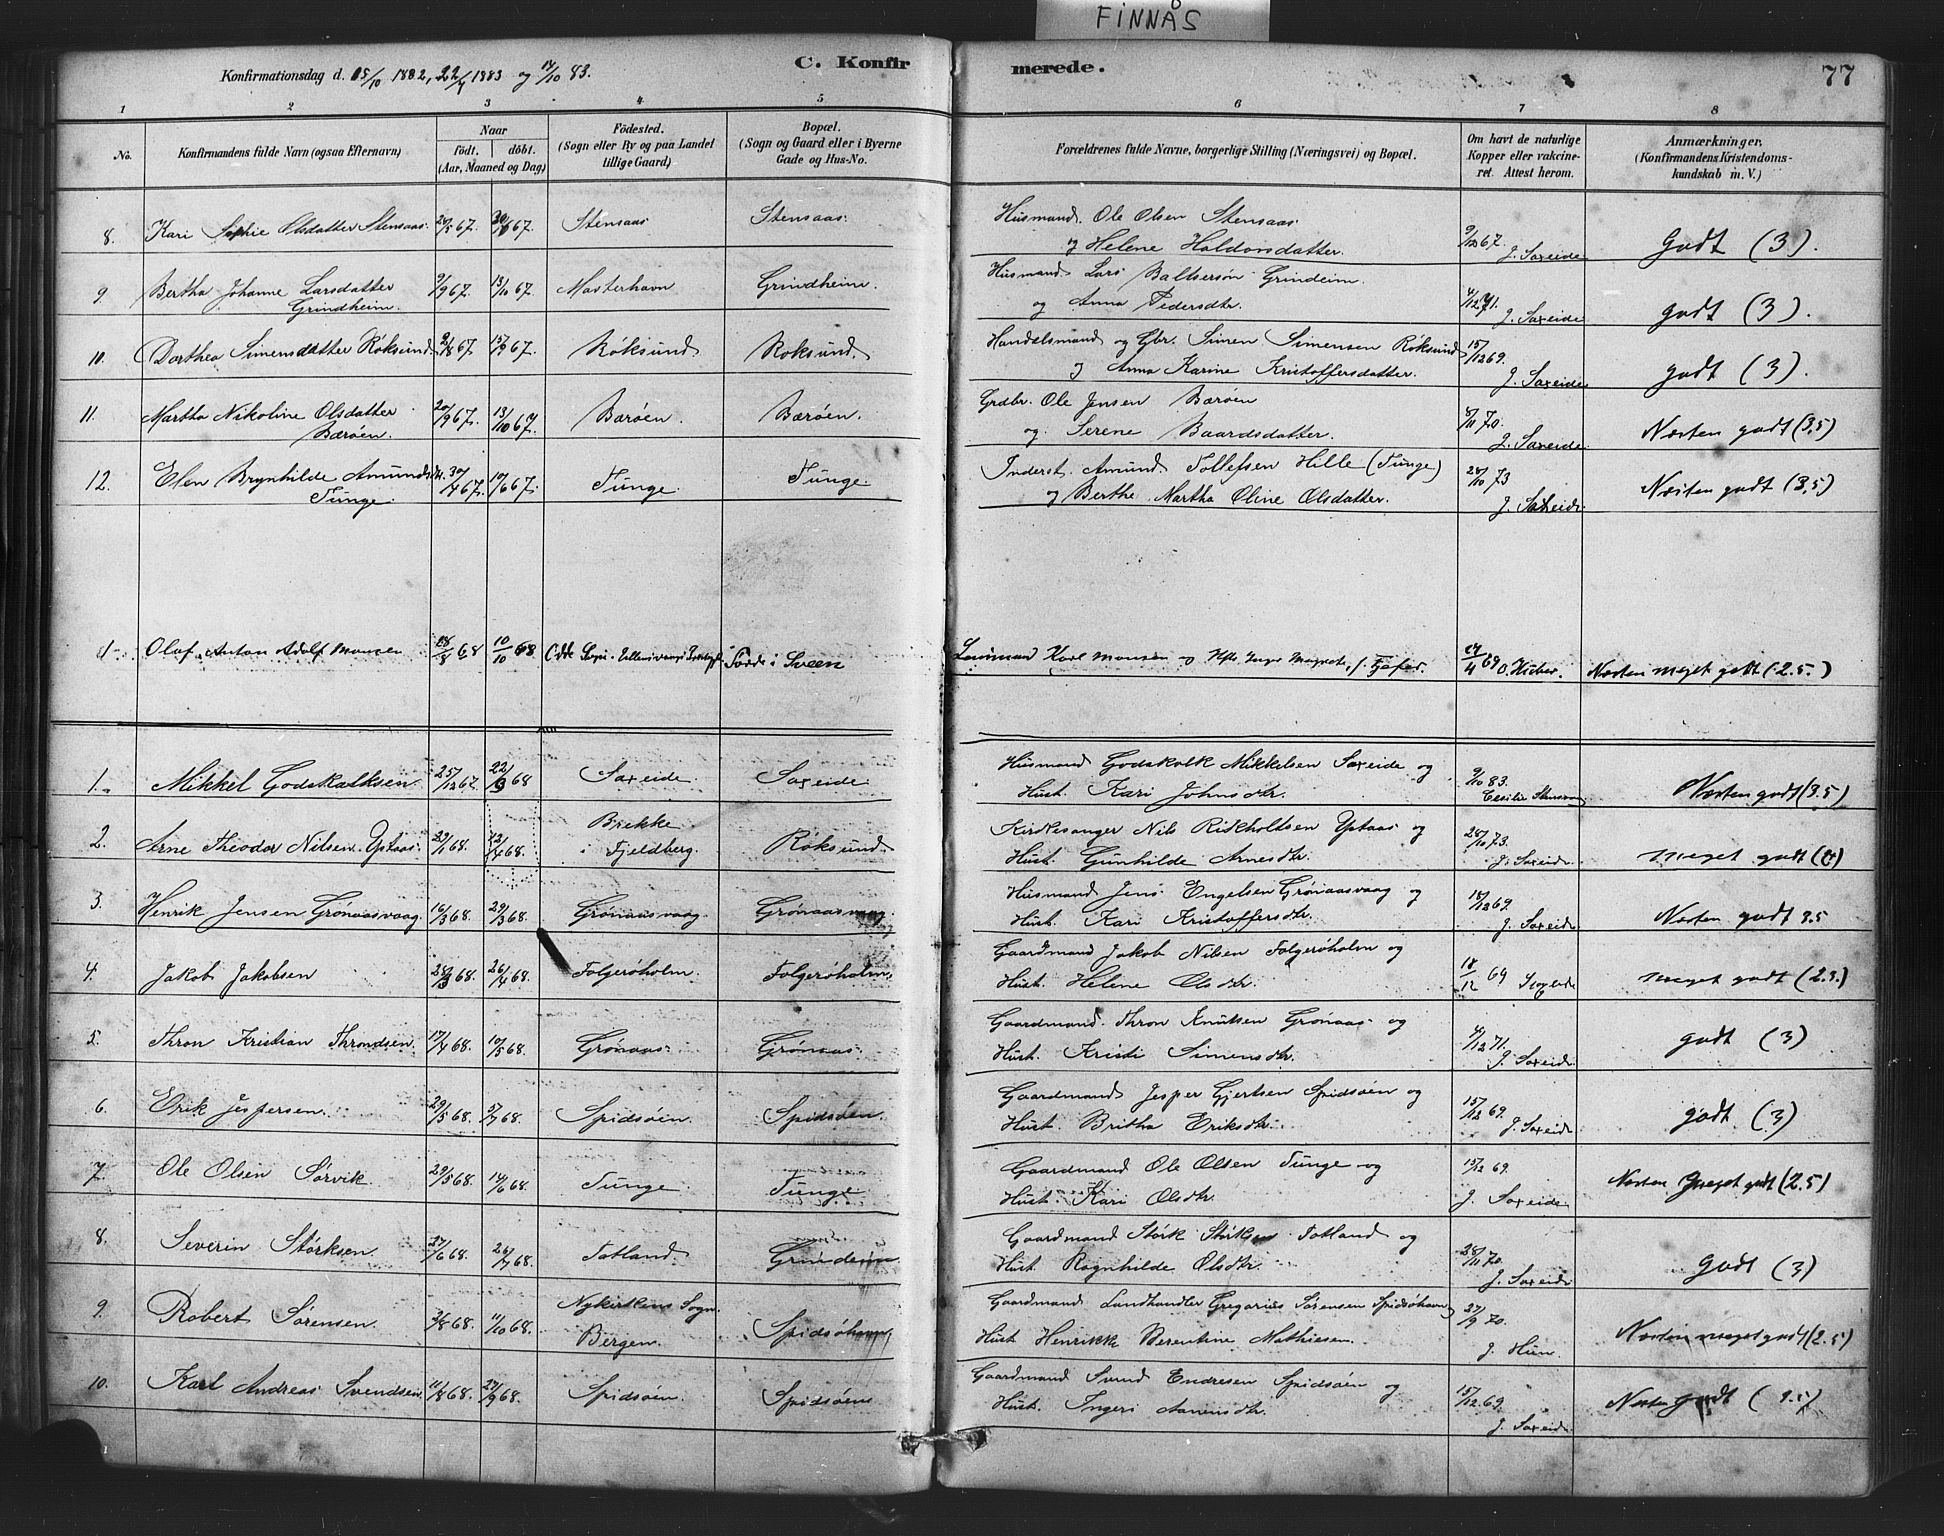 FINNÅS
Konfirmationsdag d. 15/10 1882, 22/4 1883 og 14/10 83.
C. Konfirmerede.
77
1 2 3 4 5 6 7 8
No.
Konfirmandens fulde Navn (ogsaa Efternavn)
Naar
födt. döbt.
(Aar, Maaned og Dag)
Födested.
(Sogn eller By og paa Landet
tillige Gaard)
Bopæl.
(Sogn og Gaard eller i Byerne
Gade og Hus-No.
Forældrenes fulde Navne, borgerlige Stilling (Næringsvei) og Bopæl.
Om havt de naturlige
Kopper eller vakcine-
ret. Attest herom.
Anmærkninger.
(Konfirmandens Kristendoms-
kundskab m. V.)
8. Kari Sophie Olsdatter Stensaas. Stensaas Stensaas. Husmand Ole Olsen Stensaas
og Helene Haldorsdatter. 9/12 67. J. Saxeide Godt (3).
9. Bertha Johanne Larsdatter 9/9 67. 13/10 67. Masterhavn Grindheim. Husmand Lars Baltsersön Grindeim
Grindheim. og Anna Pedersdtr. 4/12 71. J. Saxeide godt (3).
10. Dorthea Simensdatter Röksund 9/8 67. 15/9 67. Röksund Roksund. Handelsmand og Gbr. Simen Simensen Röksund
og Anna Karine Kristoffersdatter. 15/12 69. J. Saxeide godt (3).
11. Martha Nikoline Olsdatter 20/9 67. 13/10 67. Baröen Bæröen. Grdbr. Ole Jensen Bæröen
Bæröen. og Serene Baardsdatter. 8/11 70. J. Saxeide Næsten godt (3,5)
12. Elen Brynhilde Amundsdtr. 30/4 67. 10/6 67. Tunge. Tunge. Inderst. Amund Tollefsen Hille (Tunge)
Tunge. og Berthe Martha Oline Olsdatter. 28/10 73 J. Saxeide Næsten godt (3,5)
1. Olaf Anton Adolf Monsen 18/8 68 10/10 68 Odde Sogn, Ullensvangs Sveen Karl Monsen og 69 Næsten meget godt (2.5.)
1. Mikkel Godskalksen 25/12 67. 22/3 68 Saxeide Saxeide Husmand Godskalk Mikkelsen Saxeide og
Hust. Kari Johnsdtr. 9/10 83. Næsten godt (3.5)
2. Arne Theodor Nilsen Yptaas. 29/1 68. 12/4 68. Brekke Röksund Kirkesanger Nils Rikholdsen Yptaas og
i Fjeldberg. Hust. Gunhilde Arnesdtr. 28/10 73. J. Saxeide meget godt (2)
3. Henrik Jensen Grönaasvaag 16/3 68. 29/3 68. Grönaasvaag. Grönaasvaag Husmand Jens Engelsen Grönaasvaag og
Hust. Kari Kristoffersdtr. 18/12 69. J. Saxeide Næsten godt 3.5
4. Jakob Jakobsen 28/3 68. 26/4 68. Folgeröholm. Folgeröholm. Gaardmand Jakob Nilsen Folgeröholm og
Hust. Helene Olsdtr. 18/12 69 meget godt (2.3.)
5. Thron Kristian Throndsen. 17/4 68. 10/5 68. Grönaas. Grönaas. Gaardmand. Thron Knutsen Grönaas og
Hust. Kristi Simensdtr. 4/12 71. J. Saxeide godt (3)
6. Erik Jespersen. 29/5 68. 5/7 68. Spidsöen. Spidsöen. Gaardmand Jesper Gjertsen Spidsöen og
Hust. Britha Eriksdtr. 15/12 69. J. Saxeide godt (3)
7. Ole Olsen Sørvik. 29/5 68. 14/6 68. Tunge. Tunge. Gaardmand Ole Olsen Tunge og
Hust. Kari Olsdtr. 15/12 69. J. Saxeide Næsten meget godt (2.5)
8. Severin Störksen. 27/6 68. 26/7 68. Totland. Grindeim Gaardmand Störk Störksen Totland og
Hust. Ragnhilde Olsdtr. 28/11 70. J. Saxeide godt (3)
9. Robert Sörensen. 3/8 68. 11/10 68. Nykirkens Sogn. Spidsöhavn Gaardmand Landhandler Gregarius Sörensen Spidsöhavn
Bergen. Hust. Henrikke Berentine Mathiesen. 27/9 70. J. Næsten meget godt (2.5)
10. Karl Andreas Svendsen. 11/8 68. 27/9 68. Spidsöen. Spidsöen Gaardmand Svend Endresen Spidsöen og
Hust. Ingeri Aanensdtr. 15/12 69. J. Saxeide Næsten godt